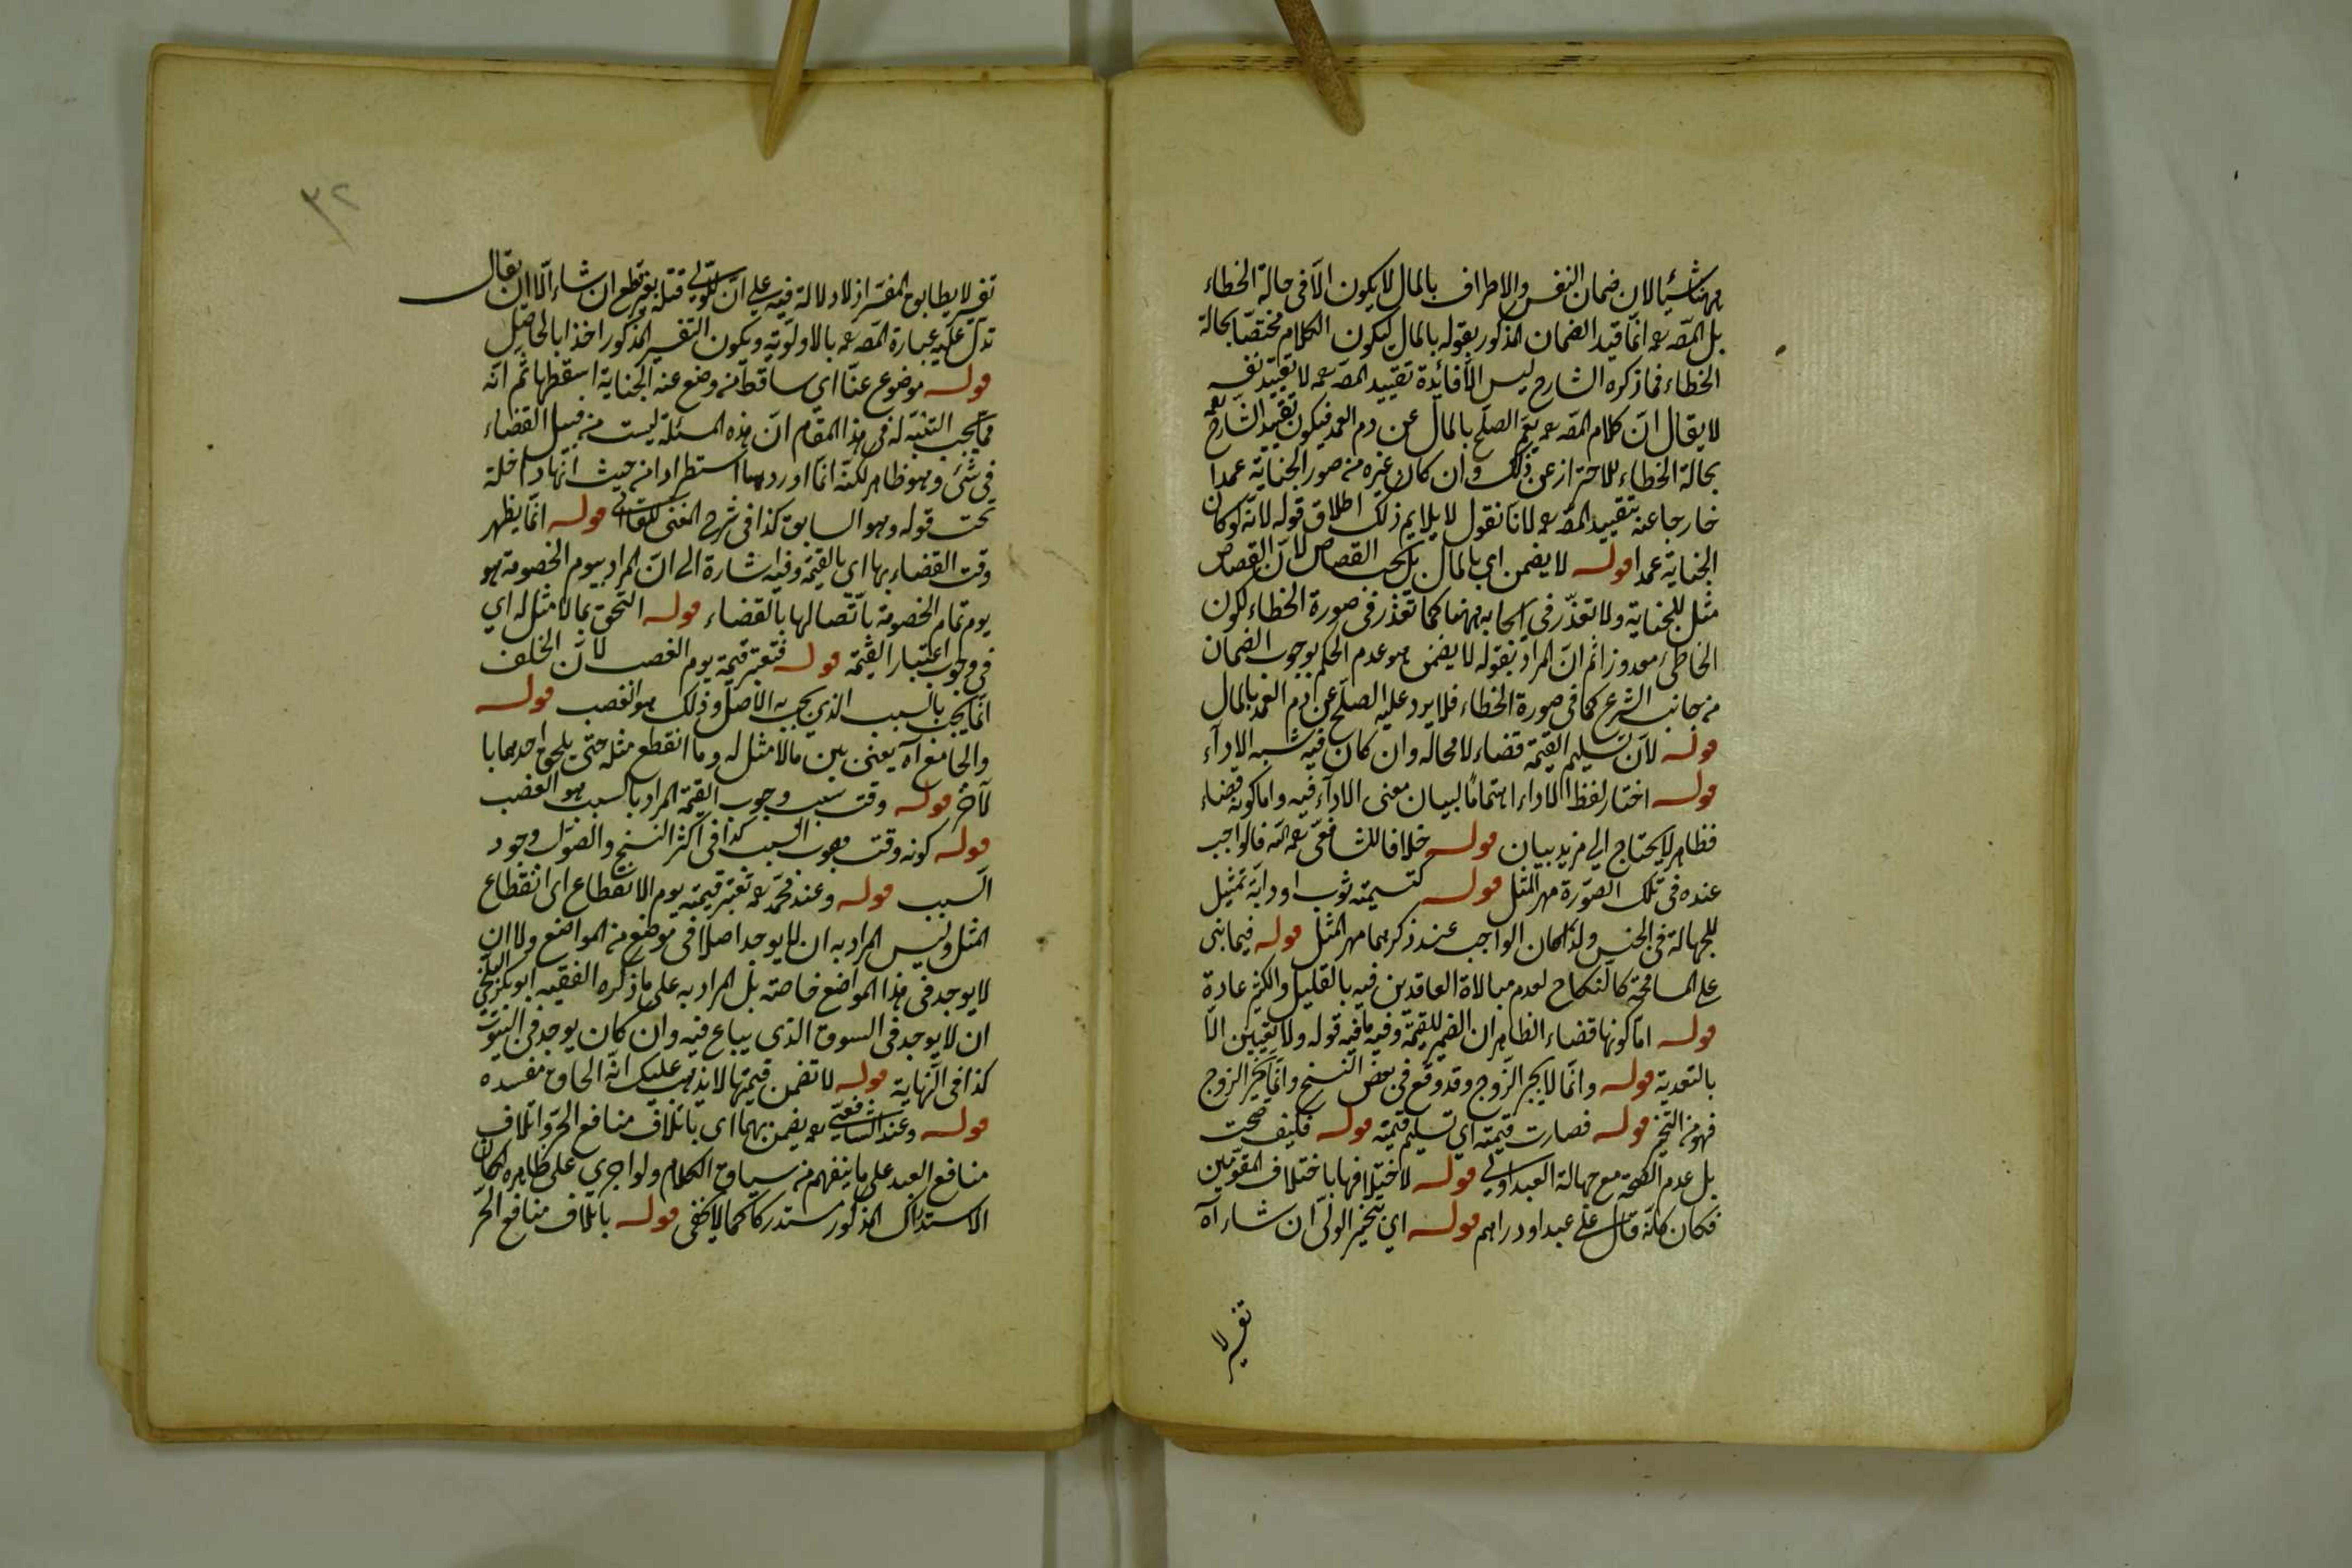 ههنا شيئا لان ضمان النفس والاطراف بالمال لا يكون الا فى حالة الخطاء
بل المصّ رحمه انّما قيد الضمان المذكور بقوله بالمال ليكون الكلام مختصّا بحالة
الخطاء فما ذكره الشارح ليس الا فائدة تقييد المصّ رحمه لا تقييد نفسه
لا يقال انّ كلام المصّ رحمه يعمّ الصلح بالمال عن دم العمد فيكون تقييد الشارح رحمه
بحالة الخطاء للاحتراز عن ذلك وان كان غيره من صور الجناية عمدا
خارجا عنه بتقييد المصّ رحمه لانا نقول لا يلايم ذلك اطلاق قوله لانّه لو كان
الجناية عمدا قوله لا يضمن اى بالمال بل يجب القصاص لانّ القصاص
مثل للجناية ولا تعذّر فى ايجابه ههنا كما تعذر فى صورة الخطاء لكون
الخاطئ معذورا ثم انّ المراد بقوله لا يضمن هو عدم الحكم بوجوب الضمان
من جانب الشرع كما فى صورة الخطاء فلا يرد عليه الصلح عن دم العمد بالمال
قوله لانّ تسليم القيمة قضاء لا محالة وان كان فيه شبه الاداء
قوله اختار لفظ الاداء اهتماما لبيان معنى الاداء فيه واما كونه قضاء
فظاهر لا يحتاج الى مزيد بيان قوله خلافا للشافعى رحمه الله فالواجب
عنده فى تلك الصورة مهر المثل قوله كتسمية ثوب او دابّة تمثيل
للجهالة فى الجنس ولذا كان الواجب عند ذكرهما مهر المثل قوله فيما بنى
على المسامحة كالنكاح لعدم مبالاة العاقدين فيه بالقليل والكثير عادة
قوله امّا كونها قضاء الظاهر ان الضمير للقيمة وفيه ما فيه قوله ولا يتعيّن الّا
بالتعدية قوله وانّما لا يجبر الزوج وقد وقع فى بعض النسخ وانّما يخيّر الزوج
فهو من التخيير قوله فصارت قيمته اى تسليم قيمته قوله فكيف صحت
بل عدم الصحة مع جهالة العبد اولى قوله لاختلافها باختلاف المقوّمين
فكان كانّه قال على عبد او دراهم قوله اى يتخيّر الولىّ ان شاء آه
تفسير لا
٣٢
تفسير لا يطابق المفسّر اذ لا دلالة فيه على انّ للولىّ قتله بغير قطع ان شاء الّا ان يقال
تدلّ عليه عبارة المصّ رحمه بالاولوّية ويكون التفسير المذكور اخذا بالحاصل
قوله موضوع عنّا اى ساقط من وضع عنه الجناية اسقطها ثم انّه
ممّا يجب التنبّه له فى هذا المقام انّ هذه المسئلة ليست من قبيل القضاء
فى شئ وهو ظاهر لكنّه انّما اوردها استطرادا من حيث انّها داخلة
تحت قوله وهو السابق كذا فى شرح المغنى للقاآنى قوله انّما يظهر
وقت القضاء بها اى بالقيمة وفيه اشارة الى انّ المراد بيوم الخصومة هو
يوم تمام الخصومة باتّصالها بالقضاء قوله التحق بما لا مثل له اى
فى وجوب اعتبار القيمة قوله فتعتبر قيمته يوم الغصب لانّ الخلف
انّما يجب بالسبب الذى يجب به الاصل وذلك هو الغصب قوله
والجامع آه يعنى بين ما لا مثل له وما انقطع مثله حتى يلحق احدهما با
لآخر قوله وقت سبب وجوب القيمة المراد بالسبب هو الغصب
قوله كونه وقت وجوب السبب كذا فى اكثر النسخ والصواب وجود
السبب قوله وعند محمّد رحمه تعتبر قيمته يوم الانقطاع اى انقطاع
المثل وليس المراد به ان لا يوجد اصلا فى موضع من المواضع ولا ان
لا يوجد فى هذا المواضع خاصّة بل المراد به على ما ذكره الفقيه ابو بكر البلخى
ان لا يوجد فى السوق الذى يباع فيه وان كان يوجد فى البيوت
كذا فى النّهاية قوله لا تضمن قيمتها لا يذهب عليك انّه الحاق مفسده
قوله وعند الشافعىّ رحمه يضمن بهما اى باتلاف منافع الحرّ واتلاف
منافع العبد على ما ينفهم من سياق الكلام ولو اجرى على ظاهره لكان
الاستدراك المذكور مستدركا كما لا يخفى قوله باتلاف منافع الحرّ